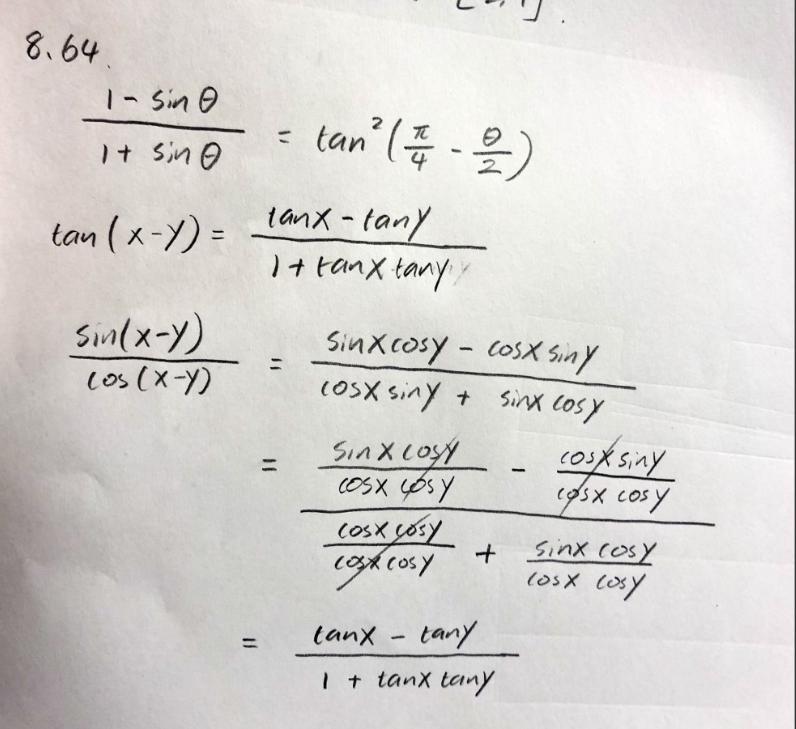 8.64.
(1 - sin θ)/(1 + sin θ) = tan²(π/4 - θ/2)
tan(x-y) = (tanx - tany)/(1 + tanx tany)
sin(x-y)/cos(x-y) = (sinx cosy - cosx siny)/(cosx siny + sinx cosy)
= ((sinx cosy)/(cosx cosy) - (cosx siny)/(cosx cosy))/((cosx cosy)/(cosx cosy) + (sinx cosy)/(cosx cosy))
= (tanx - tany)/(1 + tanx tany)